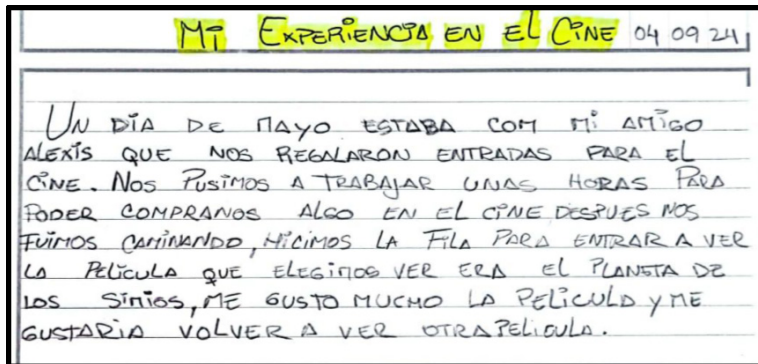 Mi EXPERiENCiA EN El CiNE 04 09 24
UN DíA DE MAYO ESTABA COM Mi AMiGO
ALEXIS QUE NOS REGALARON ENTRADAS PARA EL
CiNE. NOS PUSiMOS A TRABAJAR UNAS HORAS PARA
PODER COMPRANOS ALGO EN EL CiNE DESPUES NOS
FUiMOS CAMiNANDO, HiCiMOS LA FiLA PARA ENTRAR A VER
LA PELiCULA QUE ELEGiMOS VER ERA EL PLANETA DE
LOS SiMiOS, ME GUSTO MUCHO LA PELiCULA y ME
GUSTARiA VOLVER A VER OTRA PELiCULA.